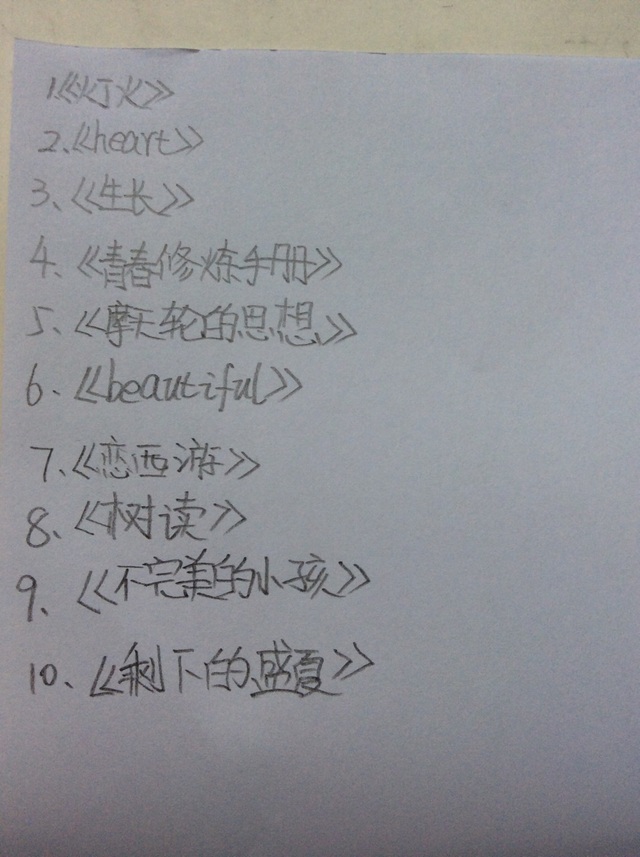 1《灯火》
2.《heart》
3、《生长》
4、《青春修炼手册》
5、《摩天轮的思想》
6.《beautiful》
7、《恋西游》
8、《树读》
9、《不完美的小孩》
10、《剩下的盛夏》